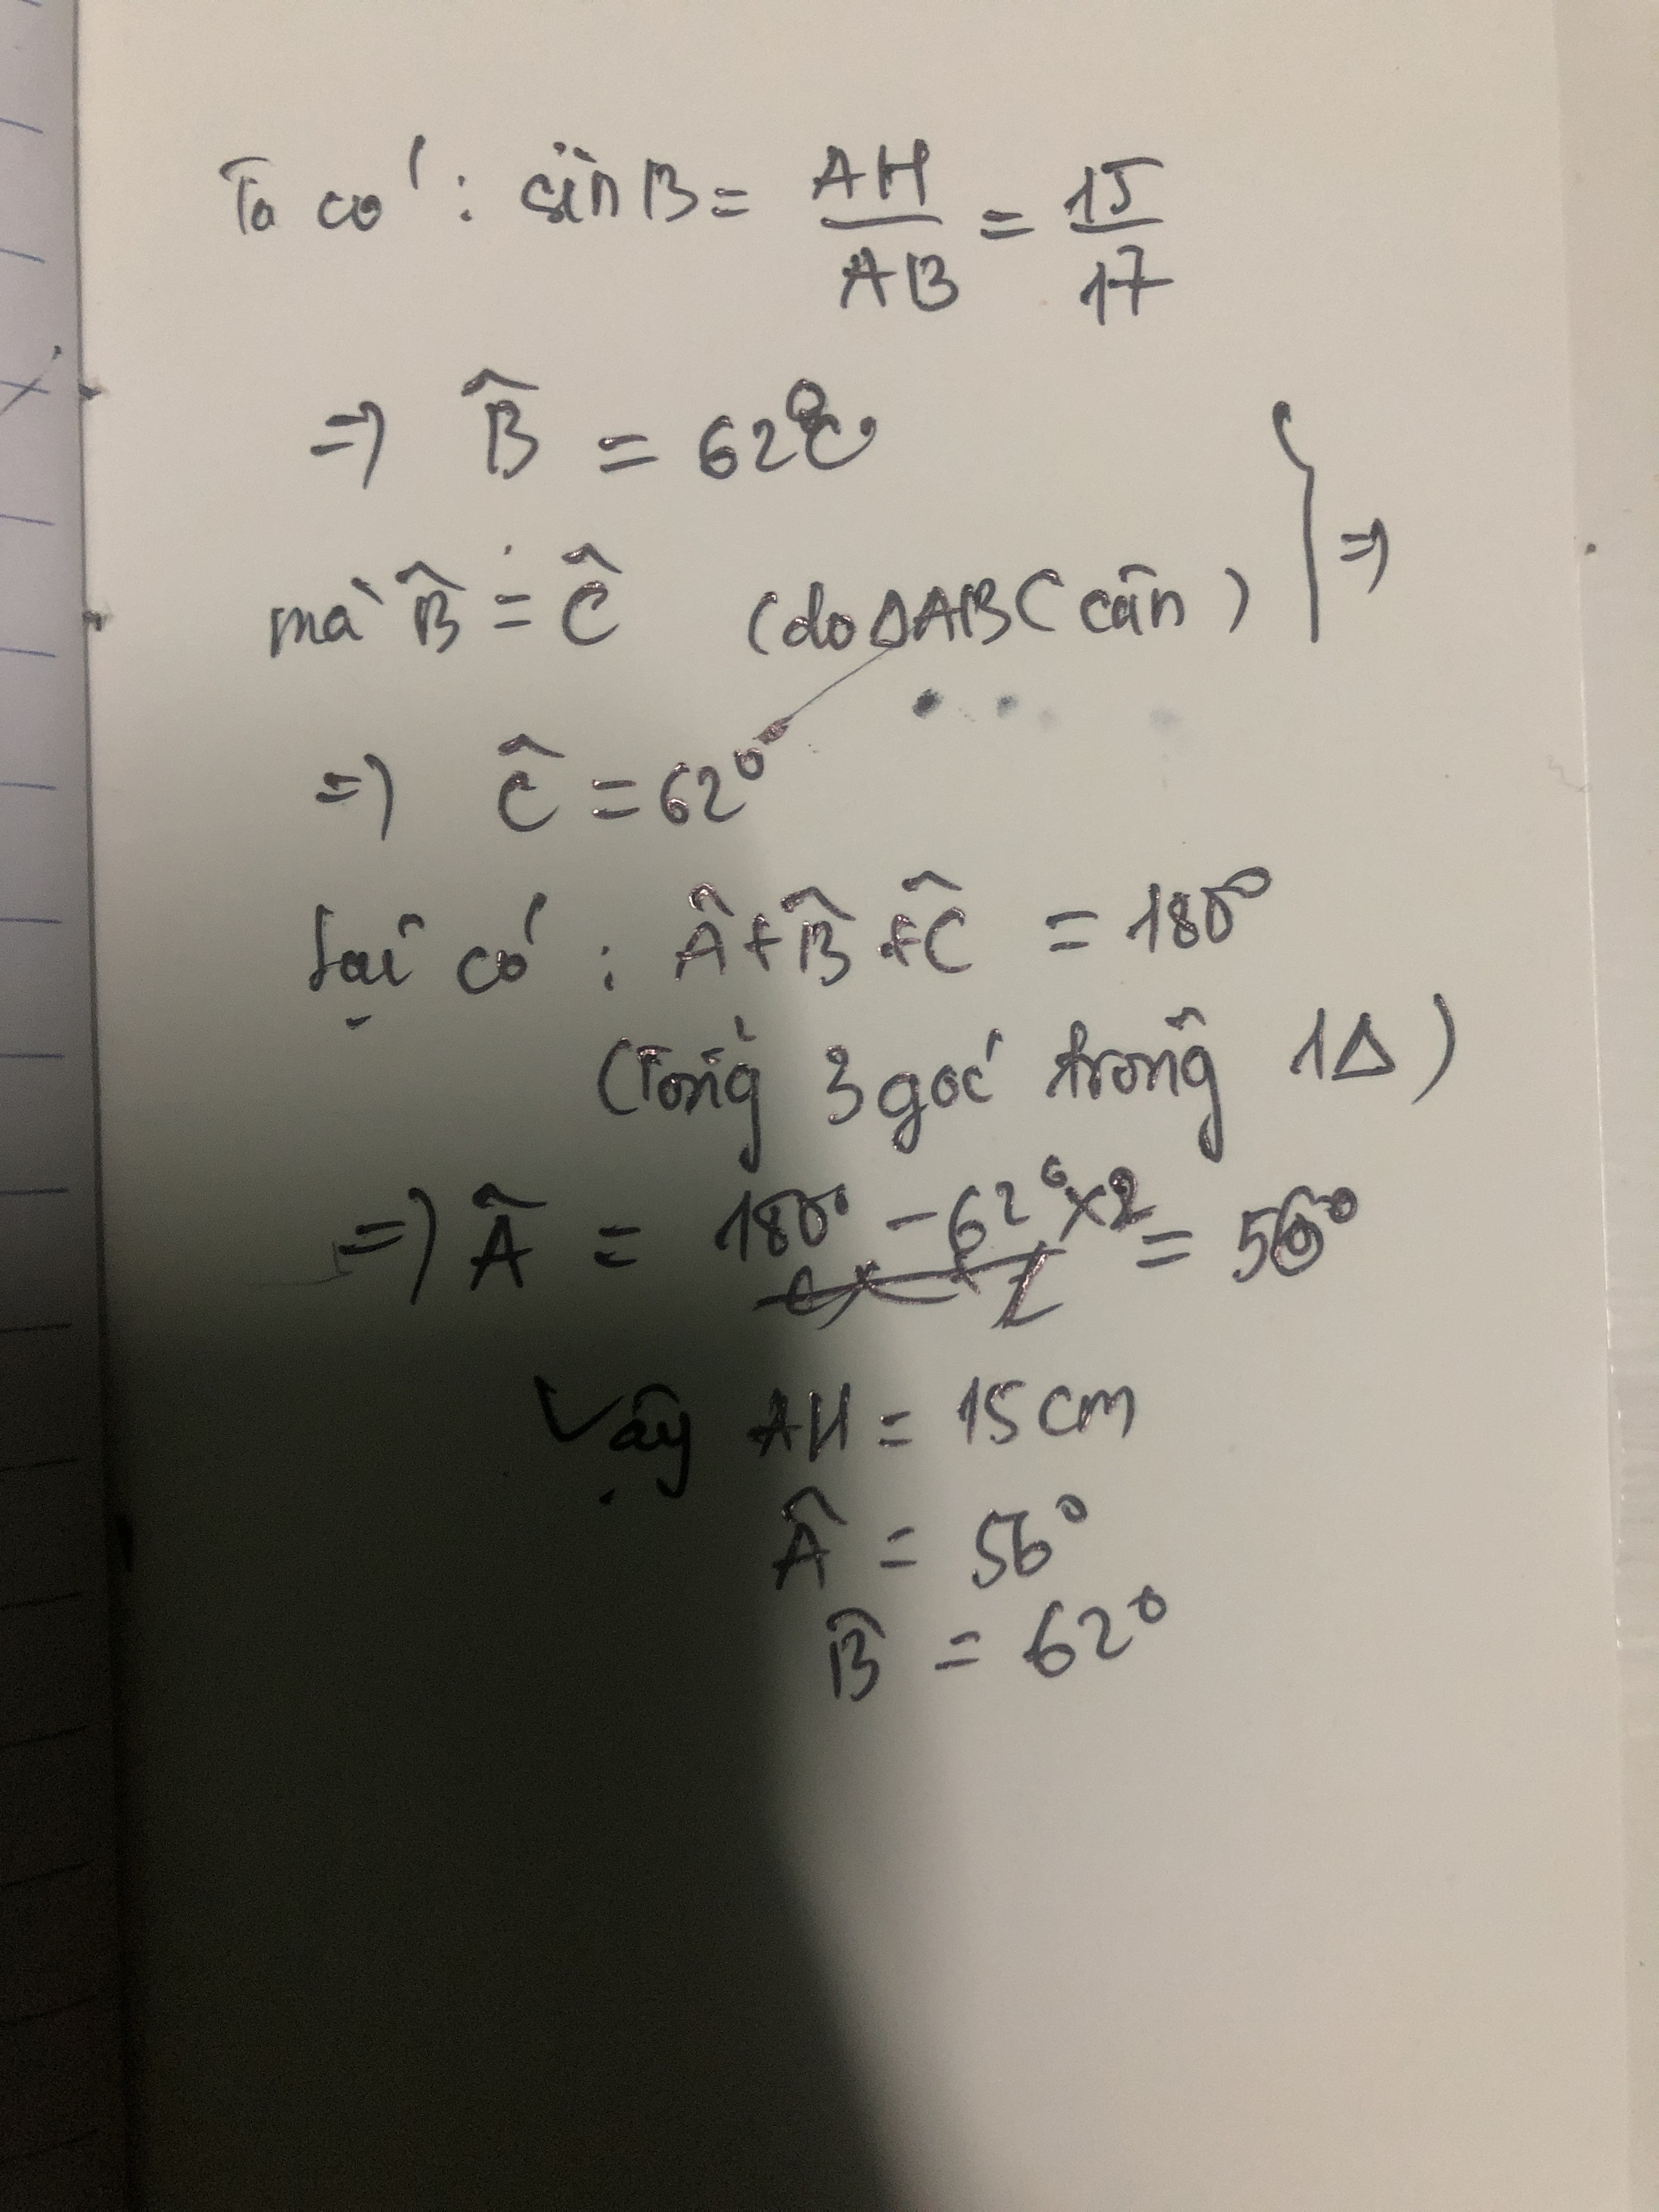 Ta có : sin B = AH/AB = 15/17
=> B̂ = 62°
mà B̂ = Ĉ (do ΔABC cân) } =>
=> Ĉ = 62°
Lại có : Â + B̂ + Ĉ = 180°
(Tổng 3 góc trong 1Δ)
=> Â = 180° - 62° x 2 = 56°
Vậy AH = 15 cm
Â = 56°
B̂ = 62°